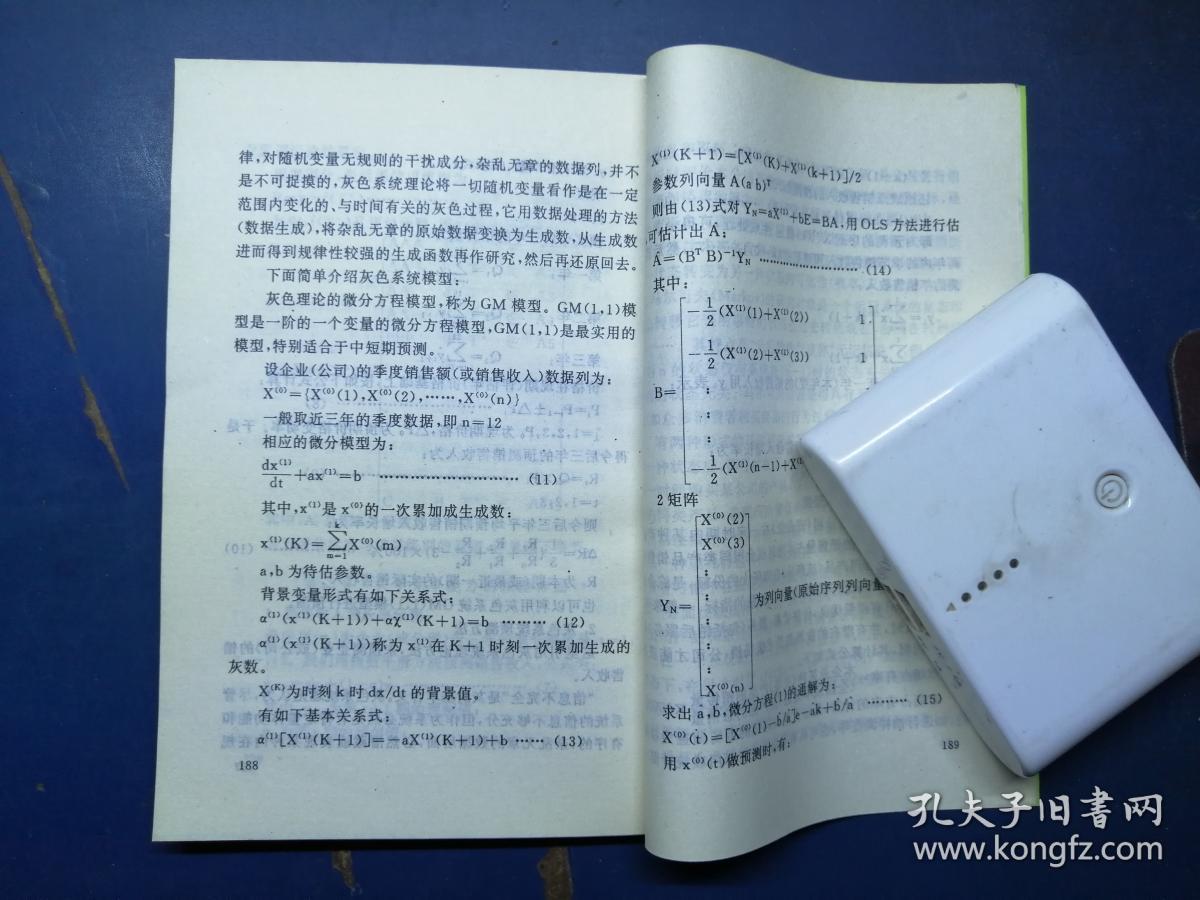 律，对随机变量无规则的干扰成分，杂乱无章的数据列，并不
是不可捉摸的，灰色系统理论将一切随机变量看作是在一定
范围内变化的、与时间有关的灰色过程，它用数据处理的方法
(数据生成)，将杂乱无章的原始数据变换为生成数，从生成数
进而得到规律性较强的生成函数再作研究，然后再还原回去。
下面简单介绍灰色系统模型：
灰色理论的微分方程模型，称为 GM 模型。GM(1,1)模
型是一阶的一个变量的微分方程模型，GM(1,1)是最实用的
模型，特别适合于中短期预测。
设企业(公司)的季度销售额(或销售收入)数据列为：
X⁽⁰⁾={X⁽⁰⁾(1),X⁽⁰⁾(2),……,X⁽⁰⁾(n)}
一般取近三年的季度数据，即 n=12
相应的微分模型为：
dx⁽¹⁾/dt+ax⁽¹⁾=b ………………………… (11)
其中，x⁽¹⁾是 x⁽⁰⁾的一次累加成生成数：
x⁽¹⁾(K)=∑ᵏₘ₌₁X⁽⁰⁾(m)
a,b 为待估参数。
背景变量形式有如下关系式：
α⁽¹⁾(x⁽¹⁾(K+1))+αχ⁽¹⁾(K+1)=b ……… (12)
α⁽¹⁾(x⁽¹⁾(K+1))称为 x⁽¹⁾在 K+1 时刻一次累加生成的
灰数。
X⁽ᴷ⁾为时刻 k 时 dx/dt 的背景值。
有如下基本关系式：
α⁽¹⁾[X⁽¹⁾(K+1)]=-aX⁽¹⁾(K+1)+b …… (13)
188
X⁽¹⁾(K+1)=[X⁽¹⁾(K)+X⁽¹⁾(k+1)]/2
参数列向量 A(a b)ᵀ
则由(13)式对 Yɴ=aX⁽¹⁾+bE=BA，用 OLS 方法进行估
可估计出 A；
A=(Bᵀ B)⁻¹Yɴ ……………………… (14)
其中：
B=
-1/2(X⁽¹⁾(1)+X⁽¹⁾(2)) 1
-1/2(X⁽¹⁾(2)+X⁽¹⁾(3)) 1
⋮
-1/2(X⁽¹⁾(n-1)+X⁽¹⁾
2 矩阵
Yɴ=
X⁽⁰⁾(2)
X⁽⁰⁾(3)
⋮
X⁽⁰⁾(n)
为列向量(原始序列列向量
求出 a,b，微分方程(1)的通解为：
X⁽⁰⁾(t)=[X⁽⁰⁾(1)-b/a]e-ak+b/a ……… (15)
用 x⁽⁰⁾(t)做预测时，有：
189
孔夫子旧書网
www.kongfz.com